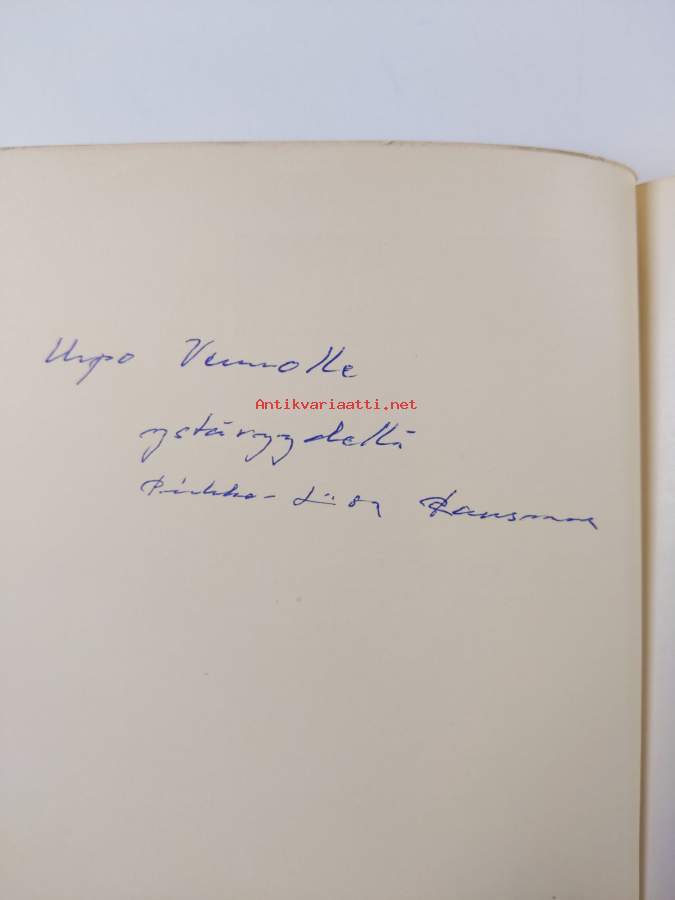 Urpo Vennolle
Antikvariaatti.net
ystävyydellä
Pirkko-Liisa Rausmaa